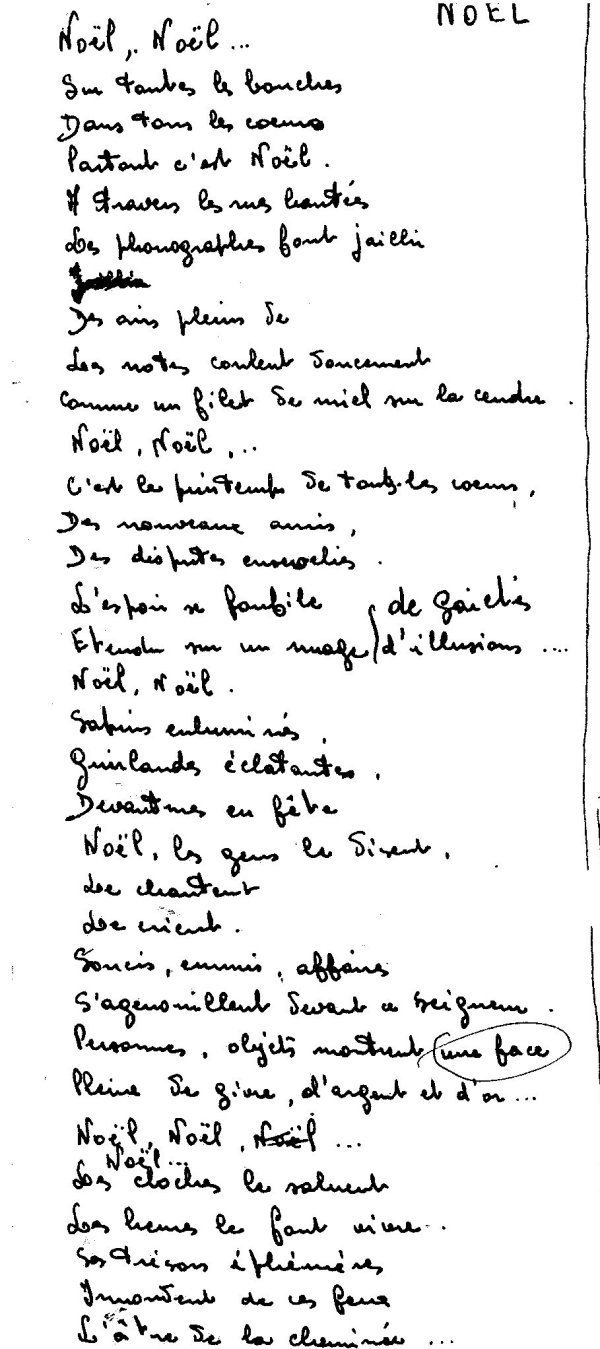 NOËL
Noël, Noël...
Sur toutes les bouches
Dans tous les coeurs
Partout c'est Noël.
A travers les rues hantées
Les phonographes font jaillir
Jaillir
Des airs pleins de
Les notes coulent doucement
Comme un filet de miel sur la cendre.
Noël, Noël,...
C'est le printemps de tous les coeurs,
Des nouveaux amis,
Des disputes ensevelies.
L'espoir se faufile de gaietés
Etendu sur un nuage d'illusions....
Noël, Noël.
Sapins enluminés,
Guirlandes éclatantes,
Devantures en fête
Noël, les gens le disent,
Le chantent
Le crient.
Soucis, ennuis, affaires
S'agenouillent devant ce seigneur.
Personnes, objets montrent une face
Pleine de givre, d'argent et d'or...
Noël, Noël, Noël...
Noël...
Les cloches le saluent
Les heures le font vivre..
Ses trésors éphémères
Inondent de ces feux
L'âtre de la cheminée...